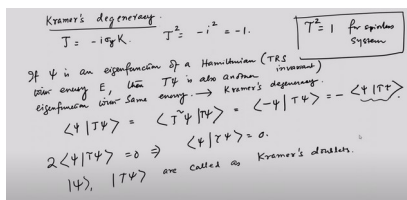 Kramer's degeneracy.
T = -iσyK. T² = -i² = -1.
T² = 1 for spinless
system
If ψ is an eigenfunction of a Hamiltonian (TRS
invariant)
with energy E, then Tψ is also another
eigenfunction with same energy. → Kramer's degeneracy.
<ψ|Tψ> = <T²ψ|Tψ> = <-ψ|Tψ> = - <ψ|Tψ>
2<ψ|Tψ> = 0 ⇒ <ψ|Tψ> = 0.
|ψ>, |Tψ> are called as Kramer's doublets.